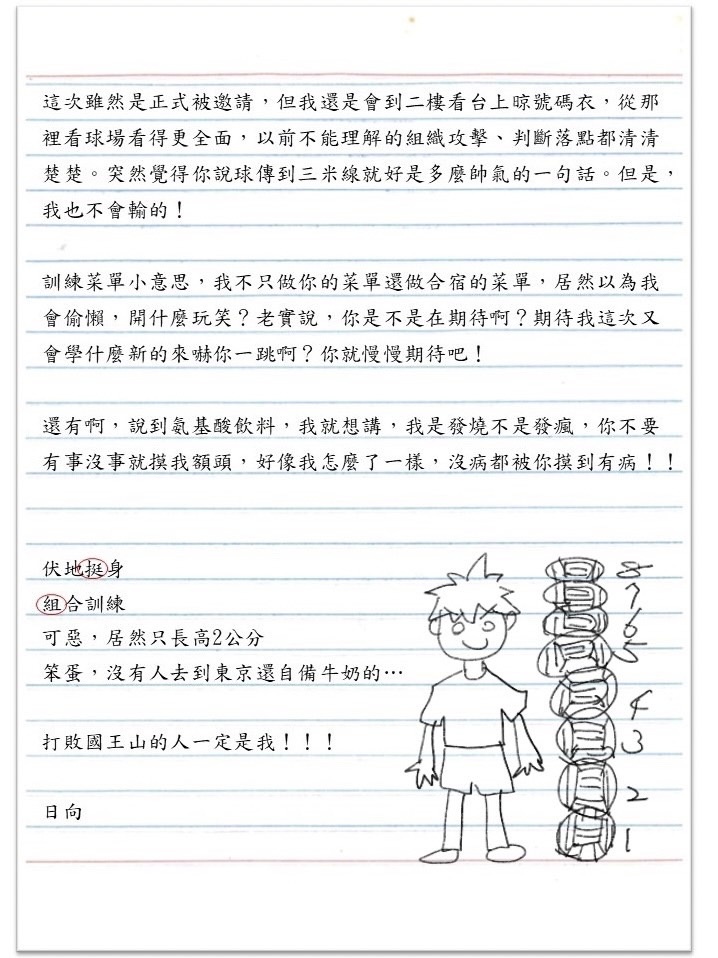 這次雖然是正式被邀請，但我還是會到二樓看台上晾號碼衣，從那
裡看球場看得更全面，以前不能理解的組織攻擊、判斷落點都清清
楚楚。突然覺得你說球傳到三米線就好是多麼帥氣的一句話。但是，
我也不會輸的！
訓練菜單小意思，我不只做你的菜單還做合宿的菜單，居然以為我
會偷懶，開什麼玩笑？老實說，你是不是在期待啊？期待我這次又
會學什麼新的來嚇你一跳啊？你就慢慢期待吧！
還有啊，說到氨基酸飲料，我就想講，我是發燒不是發瘋，你不要
有事沒事就摸我額頭，好像我怎麼了一樣，沒病都被你摸到有病！！
伏地挺身
組合訓練
可惡，居然只長高2公分
笨蛋，沒有人去到東京還自備牛奶的…
打敗國王山的人一定是我！！！
日向
8
7
6
5
4
3
2
1